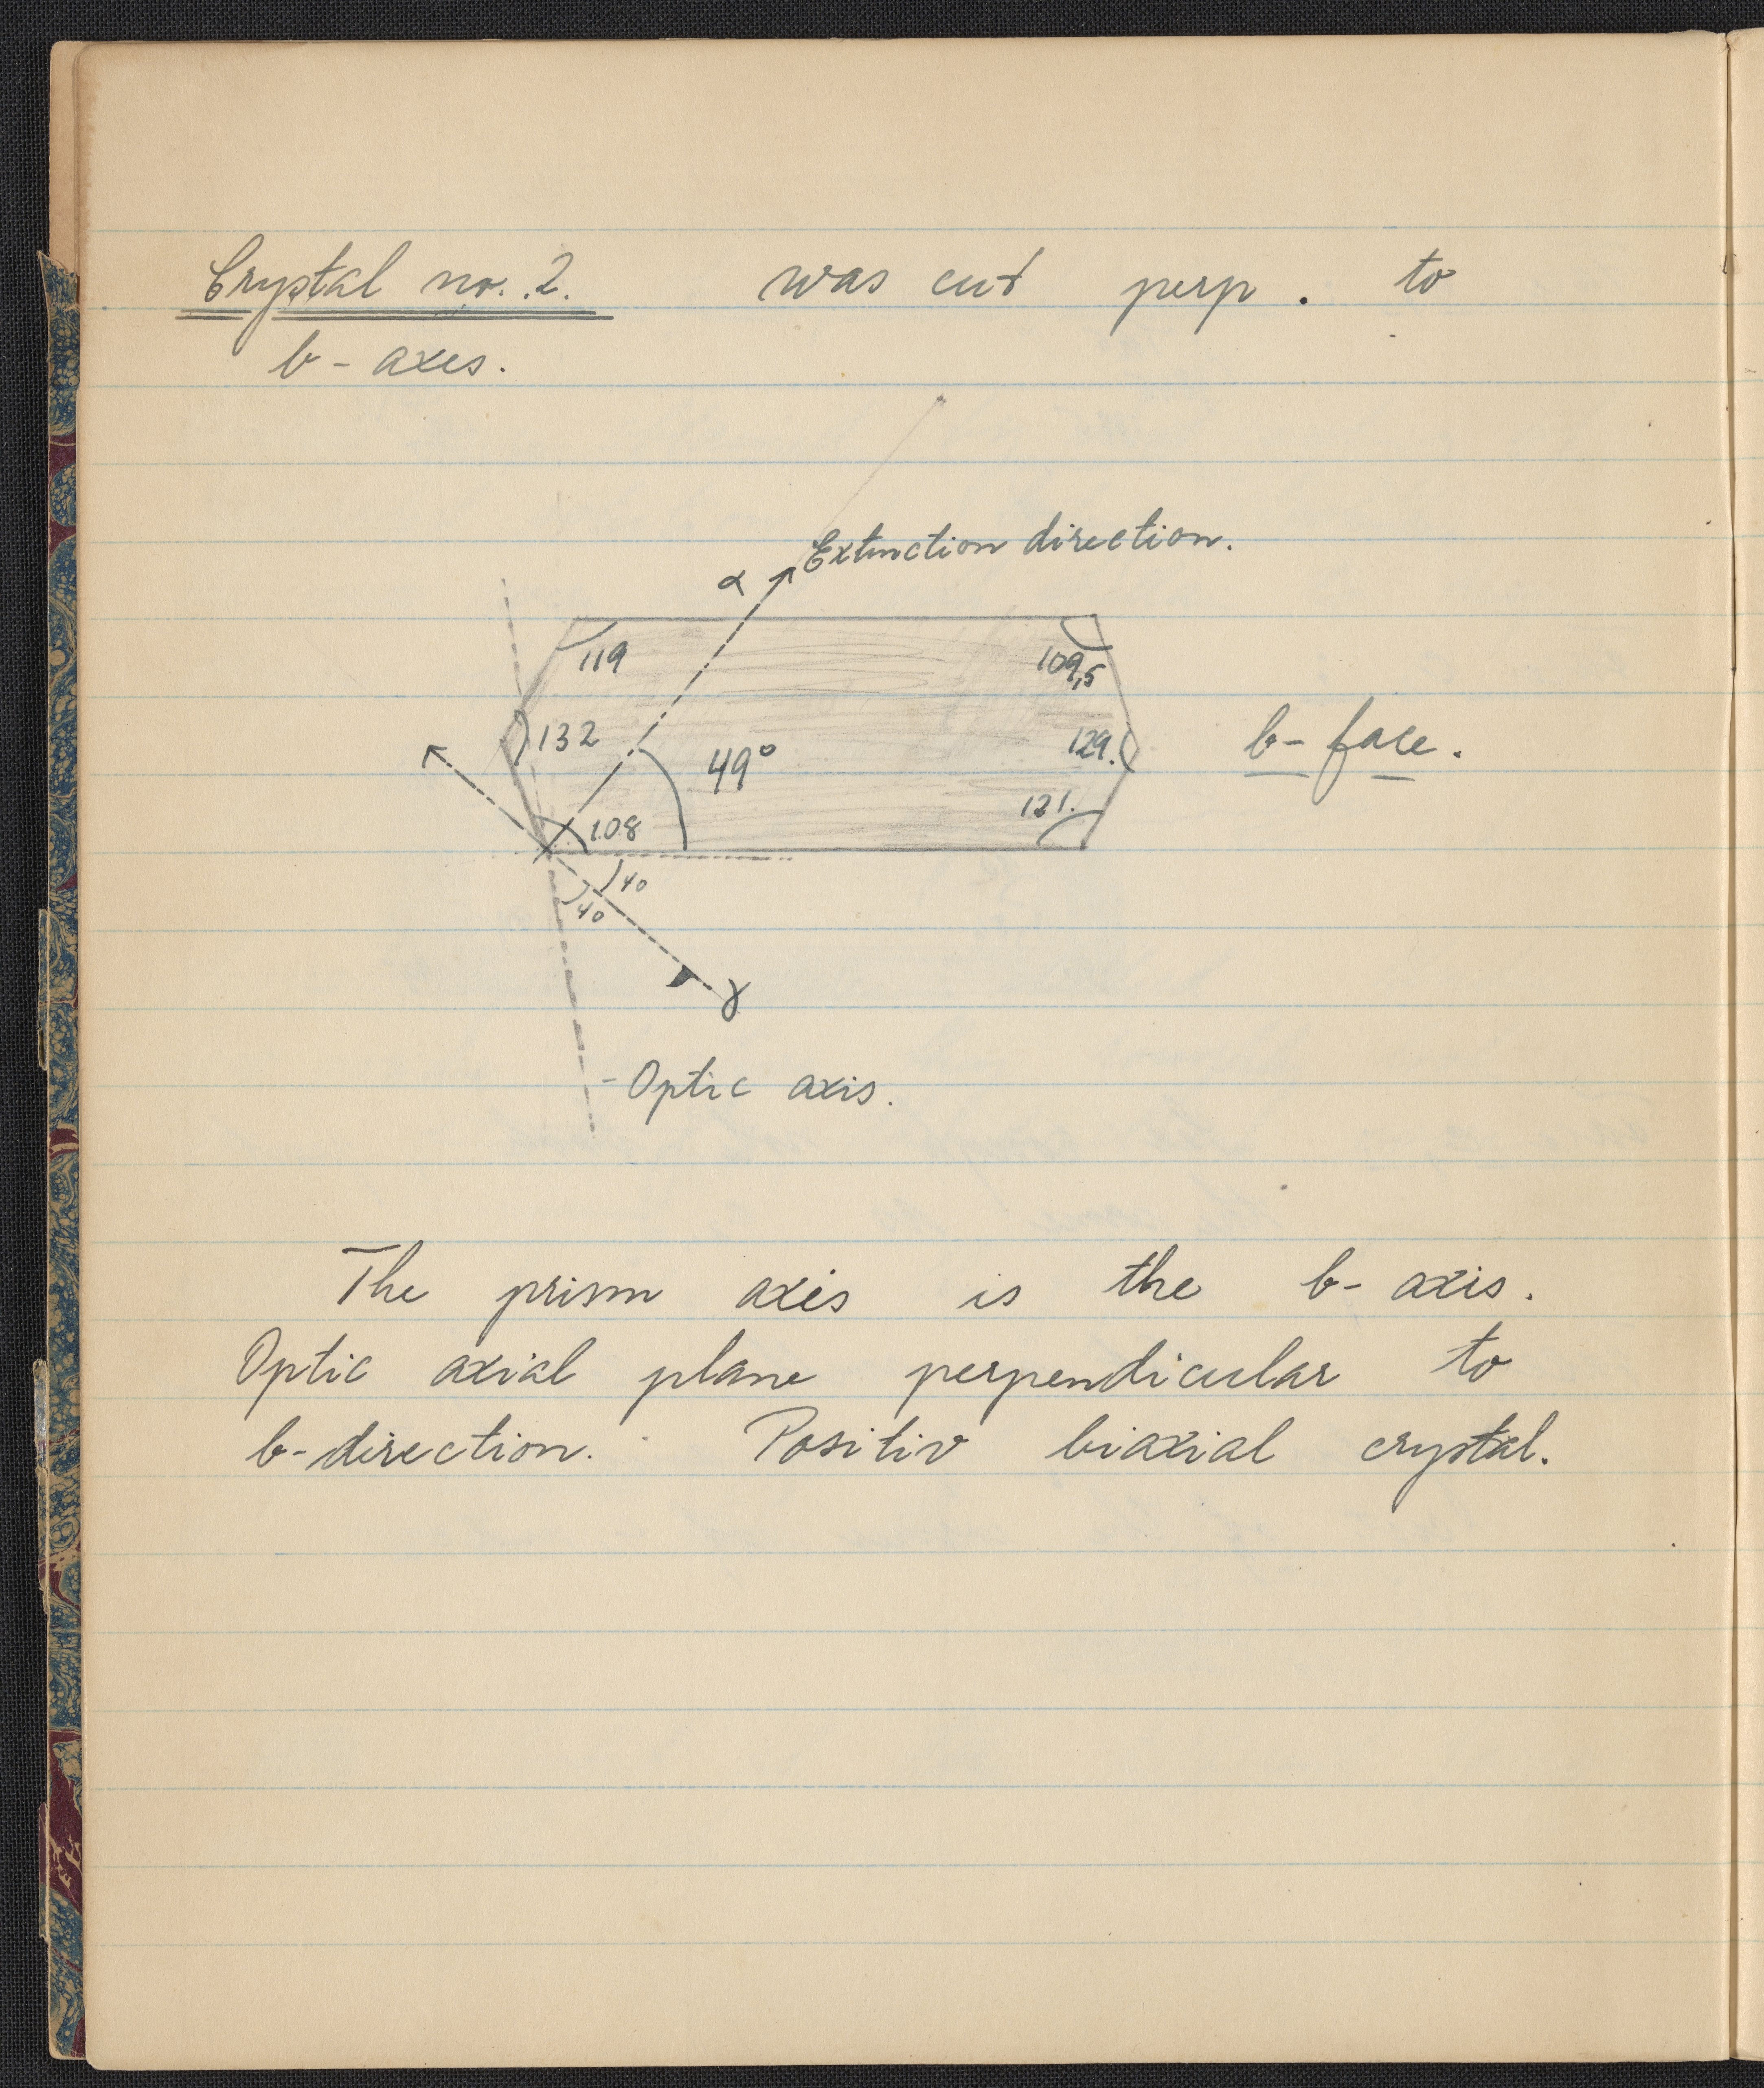 Crystal no. 2. was cut perp. to
b-axes.
Extinction direction.
α
119
109,5
132
129.
49°
b-face.
121.
108
40
40
γ
-Optic axis.
The prism axis is the b-axis.
Optic axial plane perpendicular to
b-direction. Positiv biaxial crystal.